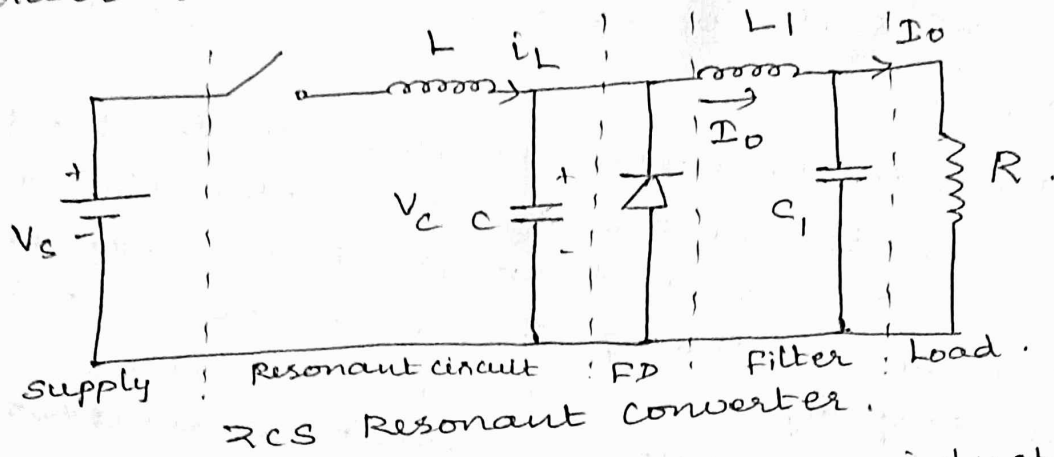 L iL L1 I0
I0
+
Vs
-
Vc C
+
-
C1
R.
Supply Resonant circuit FD Filter Load.
ZCS Resonant Converter.